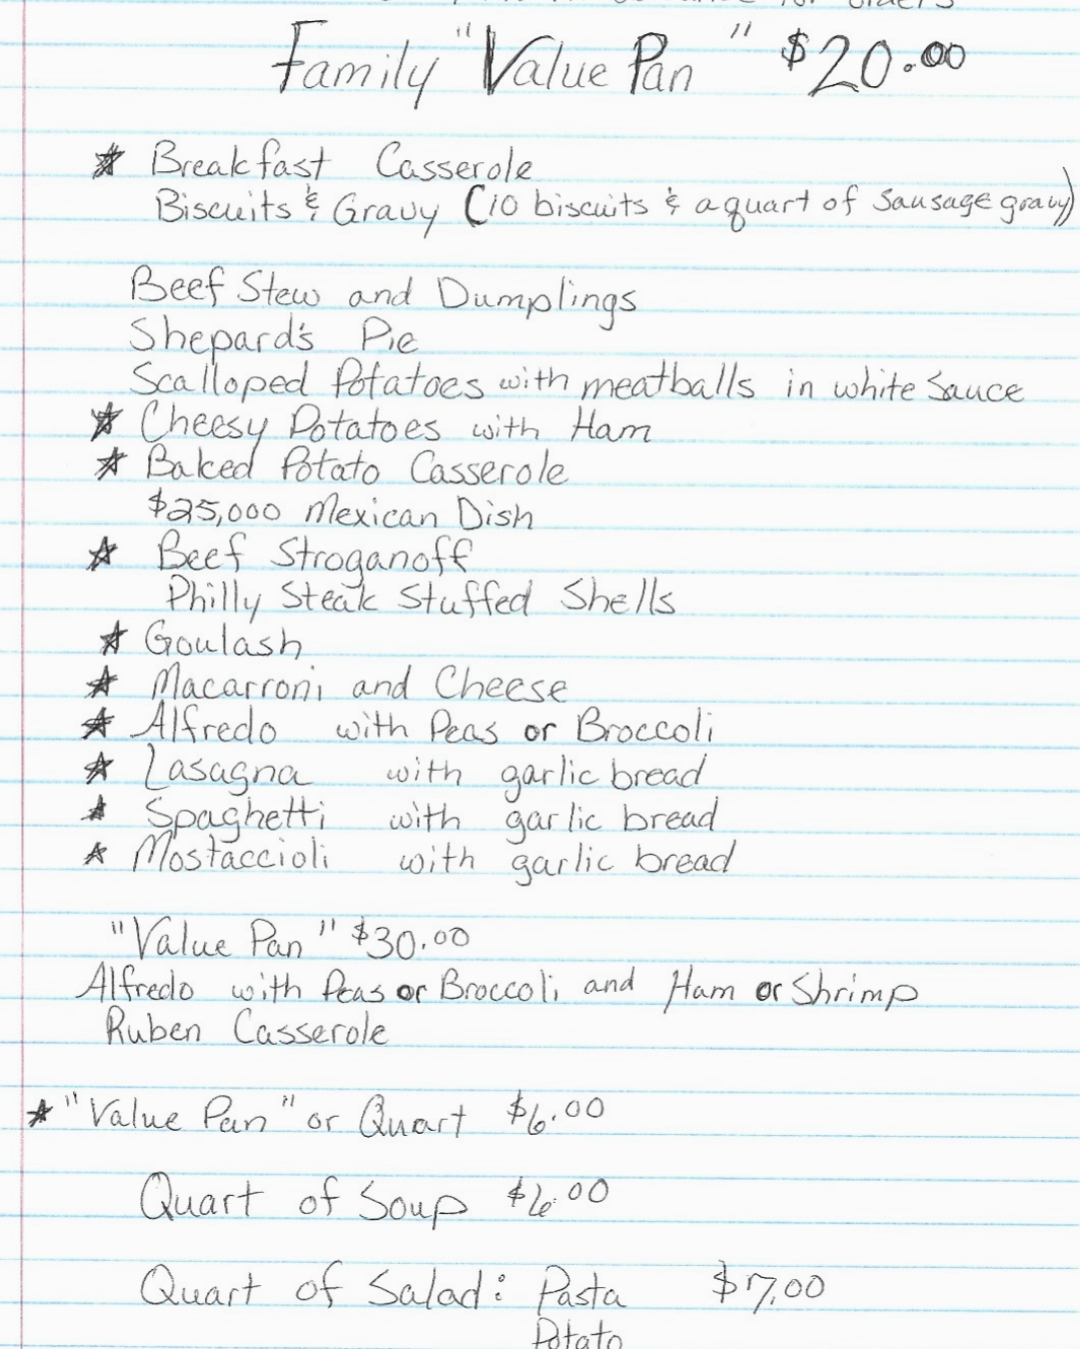 for orders
Family "Value Pan" $20.00
★ Breakfast Casserole
Biscuits & Gravy (10 biscuits & a quart of Sausage gravy)
Beef Stew and Dumplings
Shepard's Pie
Scalloped Potatoes with meatballs in white Sauce
★ Cheesy Potatoes with Ham
★ Baked Potato Casserole
$25,000 Mexican Dish
★ Beef Stroganoff
Philly Steak Stuffed Shells
★ Goulash
★ Macarroni and Cheese
★ Alfredo with Peas or Broccoli
★ Lasagna with garlic bread
★ Spaghetti with garlic bread
★ Mostaccioli with garlic bread
"Value Pan" $30.00
Alfredo with Peas or Broccoli and Ham or Shrimp
Ruben Casserole
★ "Value Pan" or Quart $6.00
Quart of Soup $6.00
Quart of Salad: Pasta $7.00
Potato